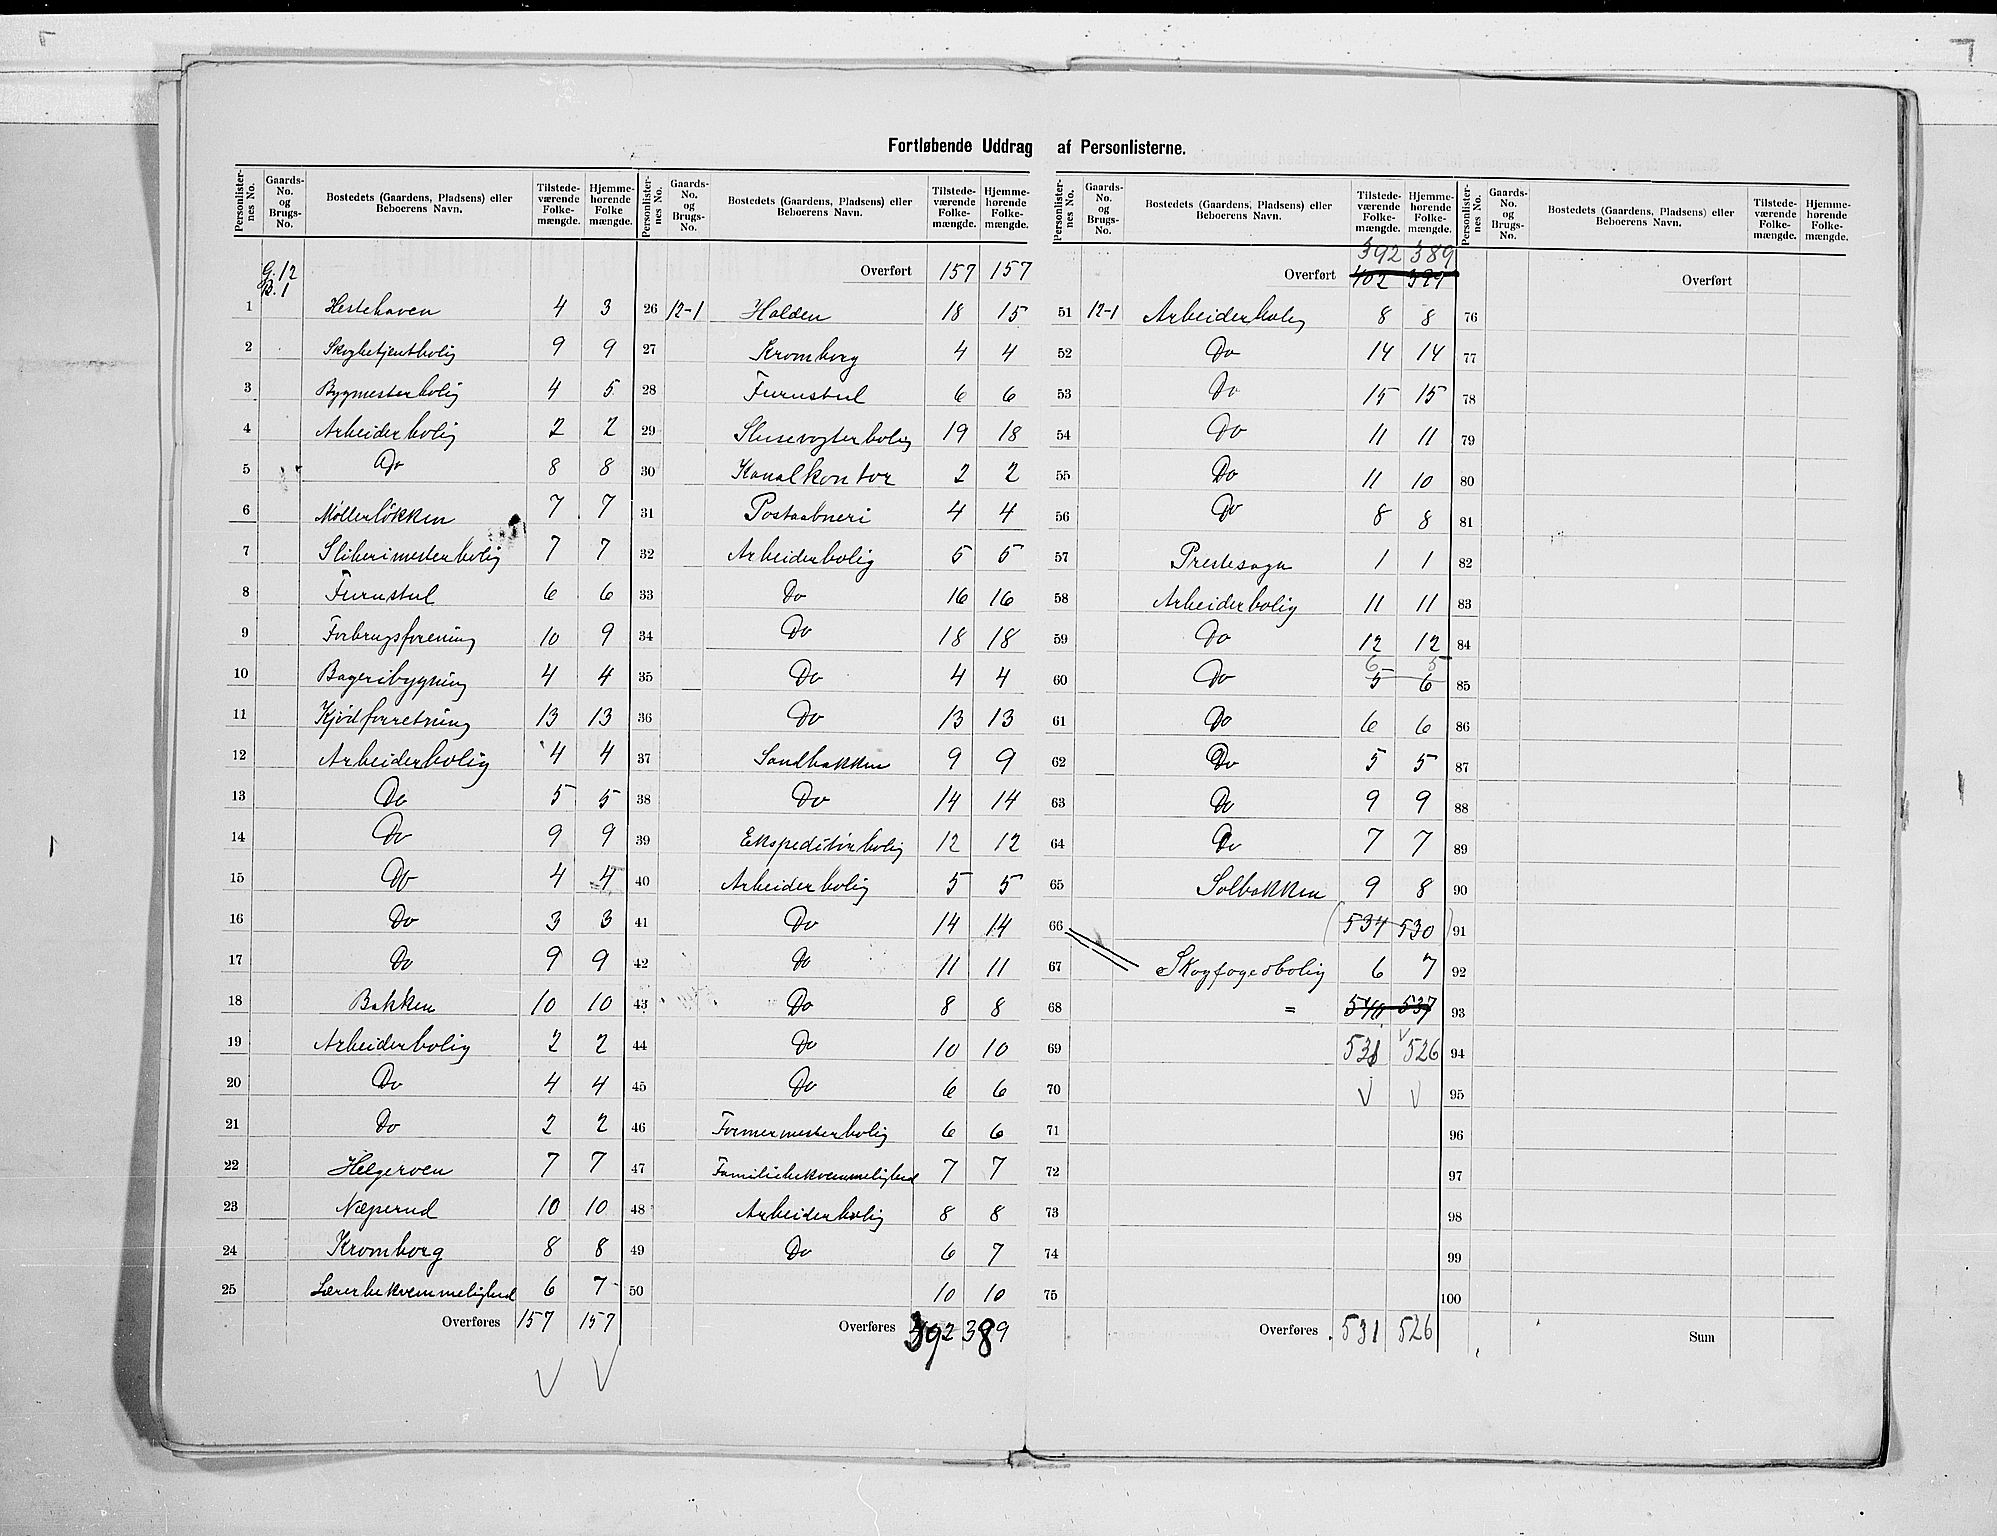 Fortløbende Uddrag af Personlisterne.
Personlisternes No. | Gaards-No. og Brugs-No. | Bostedets (Gaardens, Pladsens) eller Beboerens Navn. | Tilstedeværende Folkemængde. | Hjemmehørende Folkemængde.
G. 12
B. 1
1 Hestehaven 4 3
2 Skogbetjentbolig 9 9
3 Bygmesterbolig 4 5
4 Arbeiderbolig 2 2
5 Do 8 8
6 Møllerløkken 7 7
7 Sliberimesterbolig 7 7
8 Furustul 6 6
9 Forbrugsforening 10 9
10 Bageribygning 4 4
11 Kjödforretning 13 13
12 Arbeiderbolig 4 4
13 Do 5 5
14 Do 9 9
15 Do 4 4
16 Do 3 3
17 Do 9 9
18 Bakken 10 10
19 Arbeiderbolig 2 2
20 Do 4 4
21 Do 2 2
22 Helgeroen 7 7
23 Næperud 10 10
24 Kromborg 8 8
25 Lærerbekvemmelighed 6 7
Overføres 157 157
Personlisternes No. | Gaards-No. og Brugs-No. | Bostedets (Gaardens, Pladsens) eller Beboerens Navn. | Tilstedeværende Folkemængde. | Hjemmehørende Folkemængde.
Overført 157 157
26 12-1 Halden 18 15
27 Kromborg 4 4
28 Furustul 6 6
29 Slusevogterbolig 19 18
30 Kanalkontor 2 2
31 Postaabneri 4 4
32 Arbeiderbolig 5 5
33 Do 16 16
34 Do 18 18
35 Do 4 4
36 Do 13 13
37 Sandbakken 9 9
38 Do 14 14
39 Ekspeditörbolig 12 12
40 Arbeiderbolig 5 5
41 Do 14 14
42 Do 11 11
43 Do 8 8
44 Do 10 10
45 Do 6 6
46 Formermesterbolig 6 6
47 Familiebekvemmelighed 7 7
48 Arbeiderbolig 8 8
49 Do 6 7
50 10 10
Overføres 392 389
Personlisternes No. | Gaards-No. og Brugs-No. | Bostedets (Gaardens, Pladsens) eller Beboerens Navn. | Tilstedeværende Folkemængde. | Hjemmehørende Folkemængde.
392 389
Overført 402 399
51 12-1 Arbeiderbolig 8 8
52 Do 14 14
53 Do 15 15
54 Do 11 11
55 Do 11 10
56 Do 8 8
57 Prestesogn 1 1
58 Arbeiderbolig 11 11
59 Do 12 12
6 5
60 Do 5 6
61 Do 6 6
62 Do 5 5
63 Do 9 9
64 Do 7 7
65 Solbakken 9 8
66 (534 530)
67 Skogfogedbolig 6 7
68 = 540 537
69 531 526
70
71
72
73
74
75
Overføres 531 526
Personlisternes No. | Gaards-No. og Brugs-No. | Bostedets (Gaardens, Pladsens) eller Beboerens Navn. | Tilstedeværende Folkemængde. | Hjemmehørende Folkemængde.
Overført
76
77
78
79
80
81
82
83
84
85
86
87
88
89
90
91
92
93
94
95
96
97
98
99
100
Sum